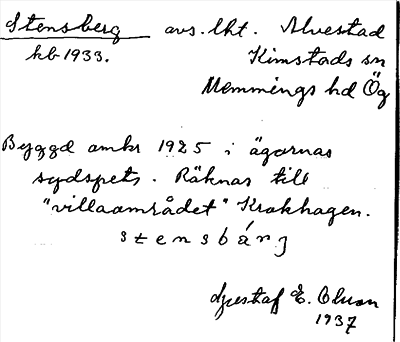 Stensberg avs. lht. Alvestad
kb 1933. Kimstads sn
Memmings hd Ög
Byggd omkr 1925 i ägornas
sydspets. Räknas till
"villaområdet" Krokhagen.
stensbárj
Gustaf E. Olson
1937